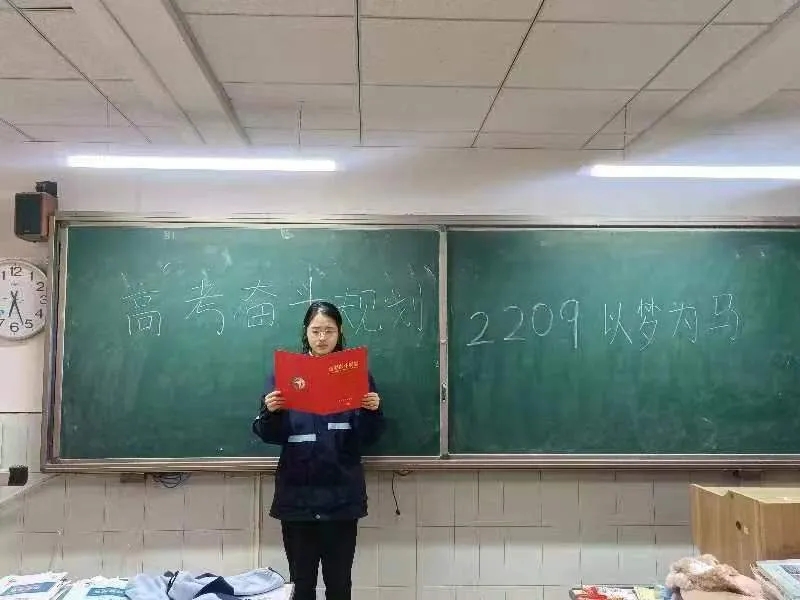 高考奋斗规划
2209 以梦为马
12